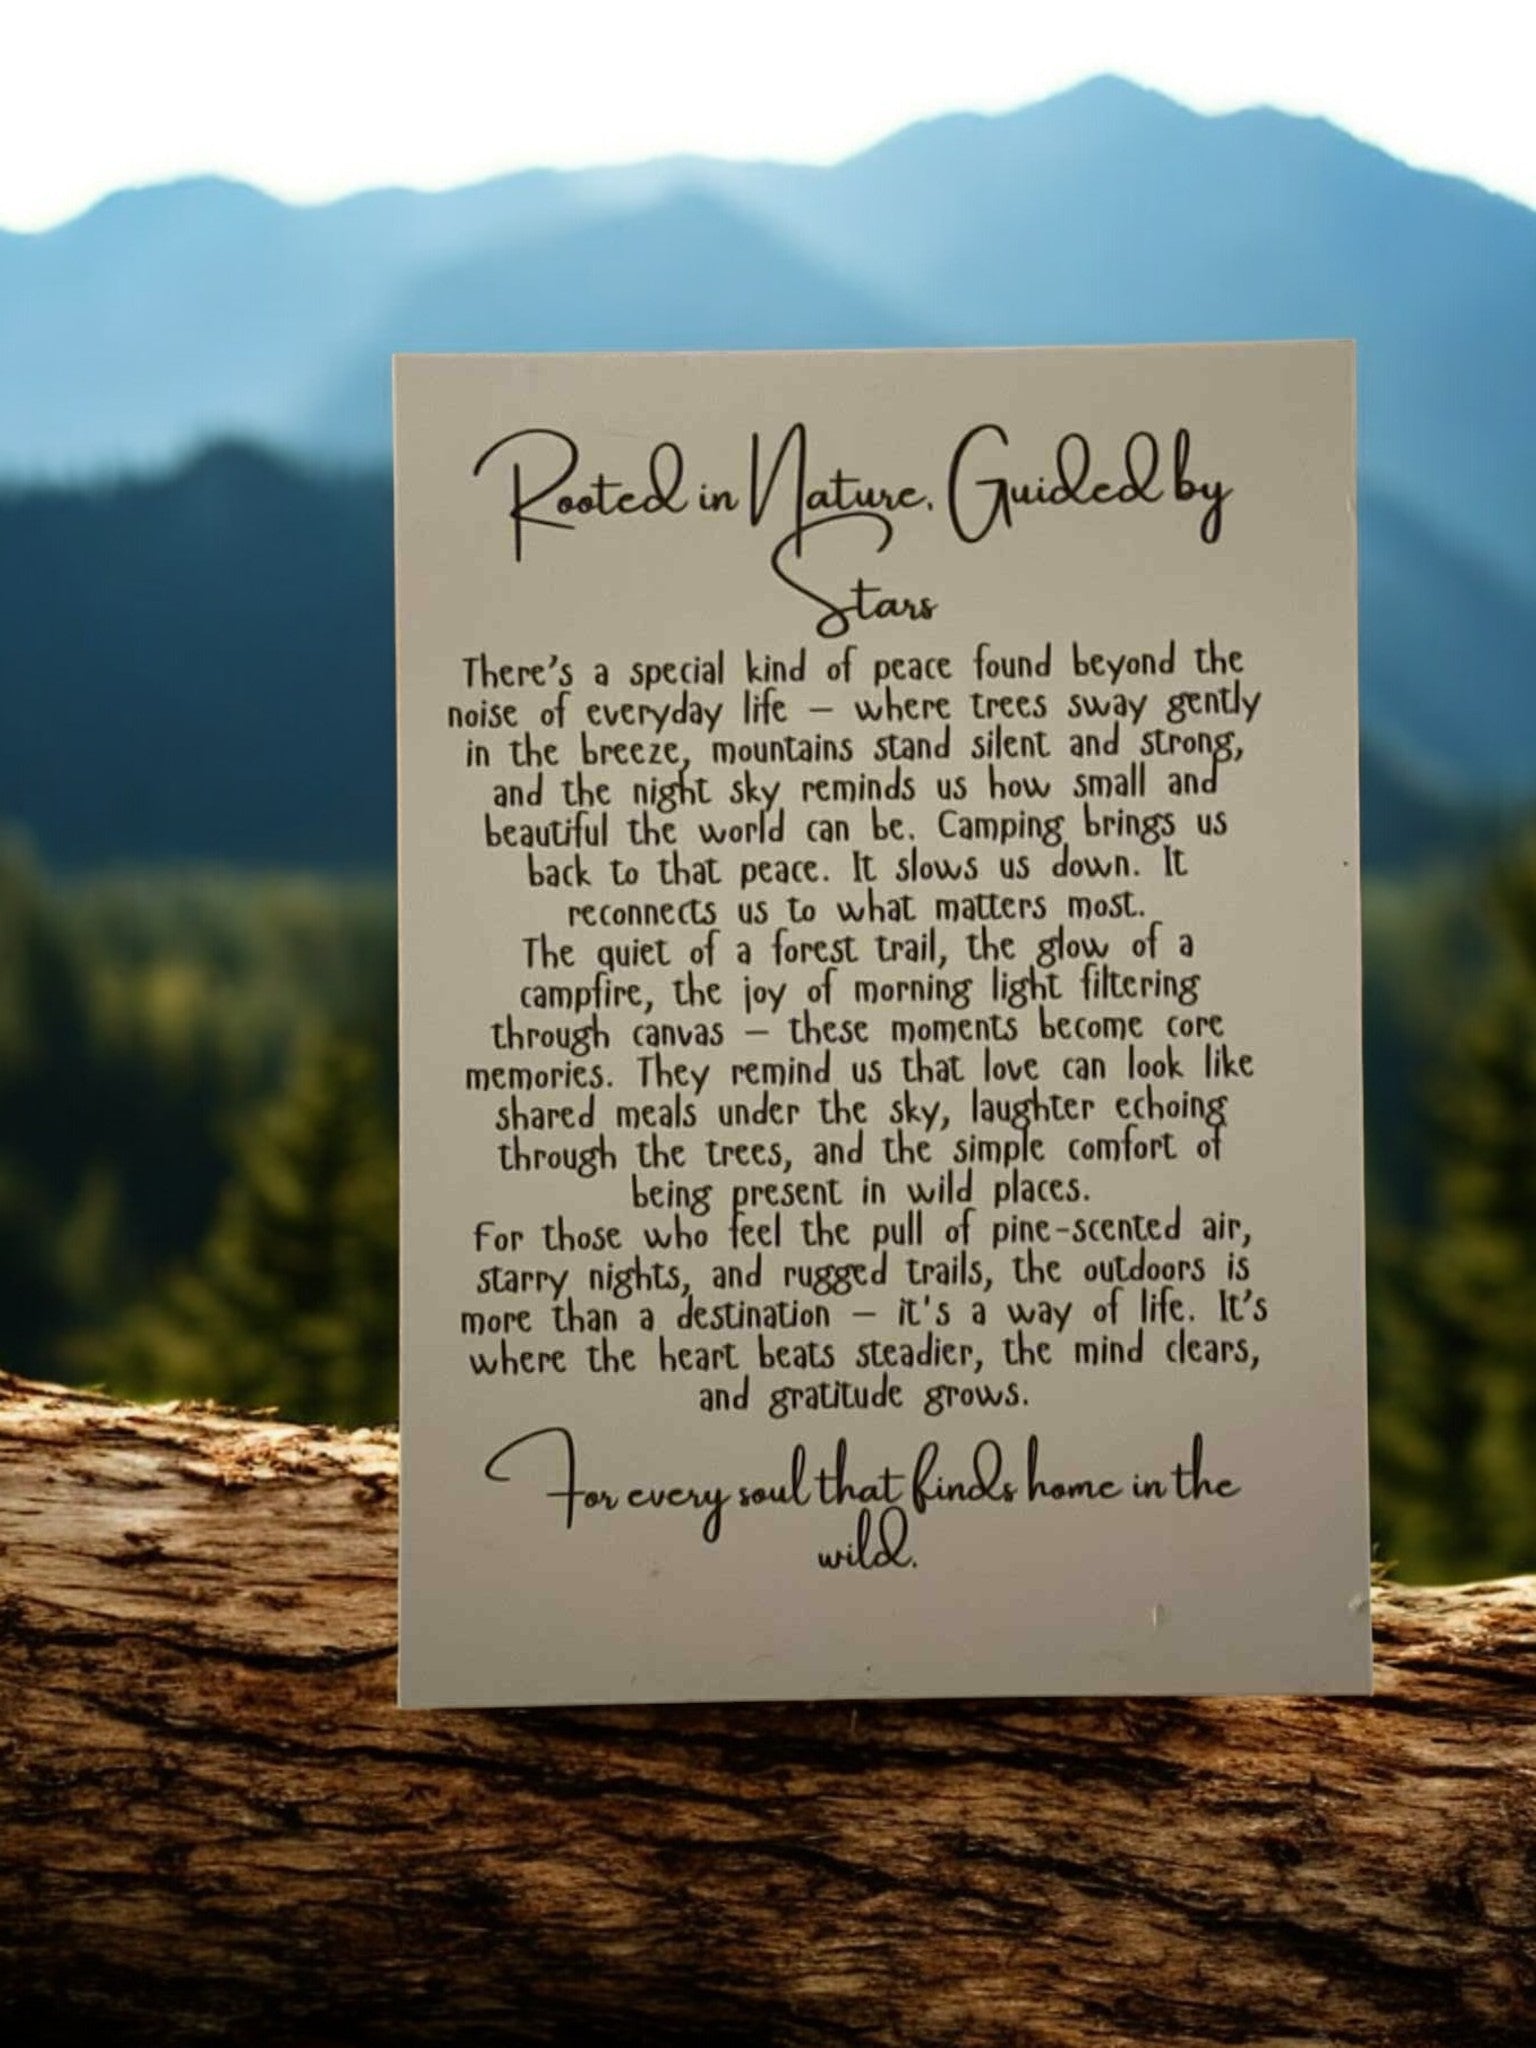 Rooted in Nature. Guided by
Stars
There's a special kind of peace found beyond the
noise of everyday life – where trees sway gently
in the breeze, mountains stand silent and strong,
and the night sky reminds us how small and
beautiful the world can be. Camping brings us
back to that peace. It slows us down. It
reconnects us to what matters most.
The quiet of a forest trail, the glow of a
campfire, the joy of morning light filtering
through canvas – these moments become core
memories. They remind us that love can look like
shared meals under the sky, laughter echoing
through the trees, and the simple comfort of
being present in wild places.
For those who feel the pull of pine-scented air,
starry nights, and rugged trails, the outdoors is
more than a destination – it's a way of life. It's
where the heart beats steadier, the mind clears,
and gratitude grows.
For every soul that finds home in the
wild.